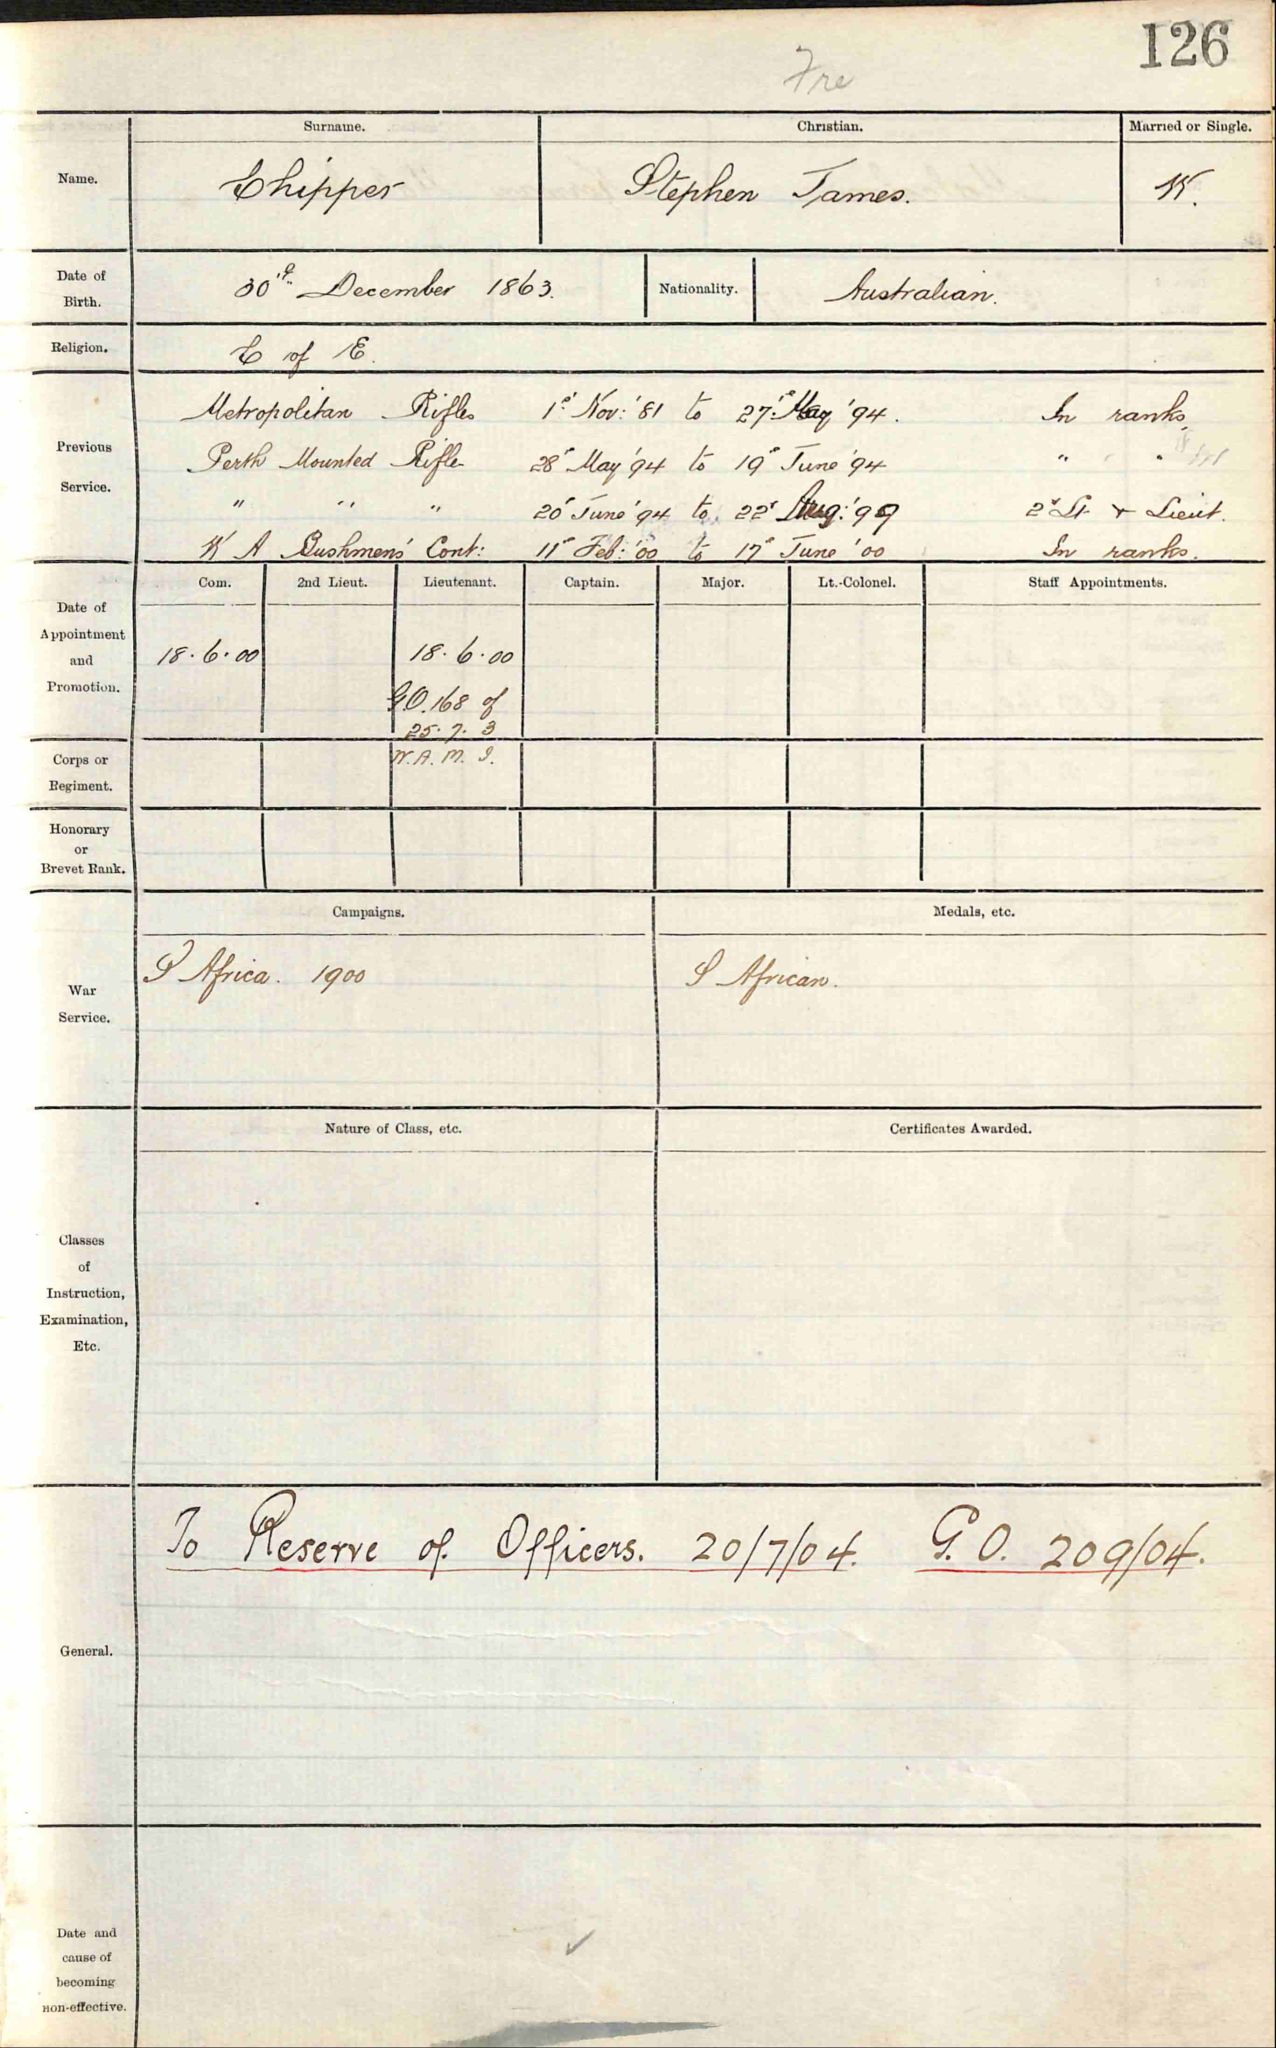 126
Fre
Surname. Christian. Married or Single.
Name. Chipper Stephen James. W.
Date of Birth. 30th December 1863. Nationality. Australian.
Religion. C of E.
Previous Service.
Metropolitan Rifles 1st Nov: '81 to 27th May '94. In ranks
Perth Mounted Rifles 28th May '94 to 19th June '94 " " "
" " " 20th June '94 to 22nd Aug: '99 2nd Lt & Lieut.
W A Bushmens' Cont: 11th Feb: '00 to 17th June '00 In ranks.
Com. 2nd Lieut. Lieutenant. Captain. Major. Lt.-Colonel. Staff Appointments.
Date of Appointment and Promotion.
18.6.00 18.6.00
G.O. 168 of
25.7.3
W.A.M.I.
Corps or Regiment.
Honorary or Brevet Rank.
Campaigns. Medals, etc.
War Service. S Africa. 1900 S African.
Nature of Class, etc. Certificates Awarded.
Classes of Instruction, Examination, Etc.
To Reserve of Officers. 20/7/04. G.O. 209/04.
General.
Date and cause of becoming non-effective.